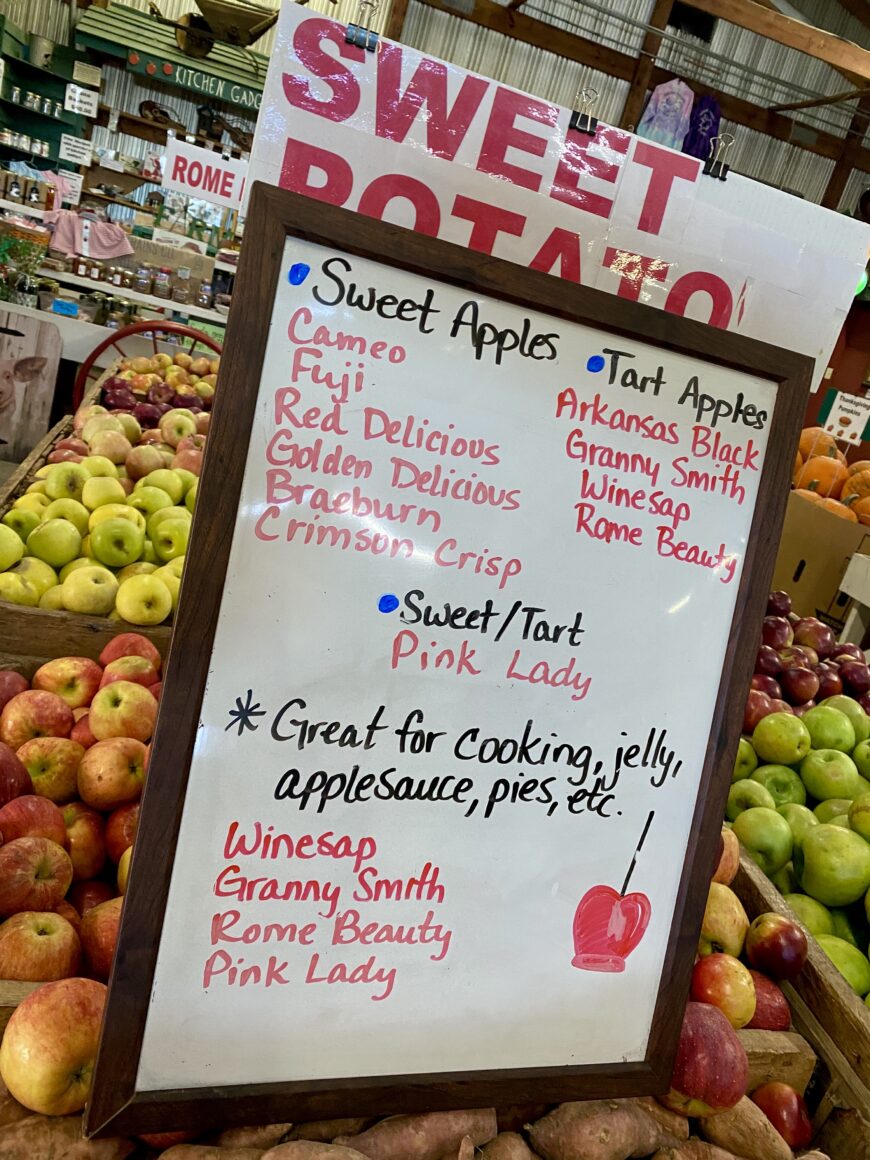 KITCHEN GADG
ROME
SWEET
POTATO
Sweet Apples
Cameo
Fuji
Red Delicious
Golden Delicious
Braeburn
Crimson Crisp
Tart Apples
Arkansas Black
Granny Smith
Winesap
Rome Beauty
Sweet/Tart
Pink Lady
* Great for cooking, jelly,
applesauce, pies, etc.
Winesap
Granny Smith
Rome Beauty
Pink Lady
Thanksgiving
Pumpkins